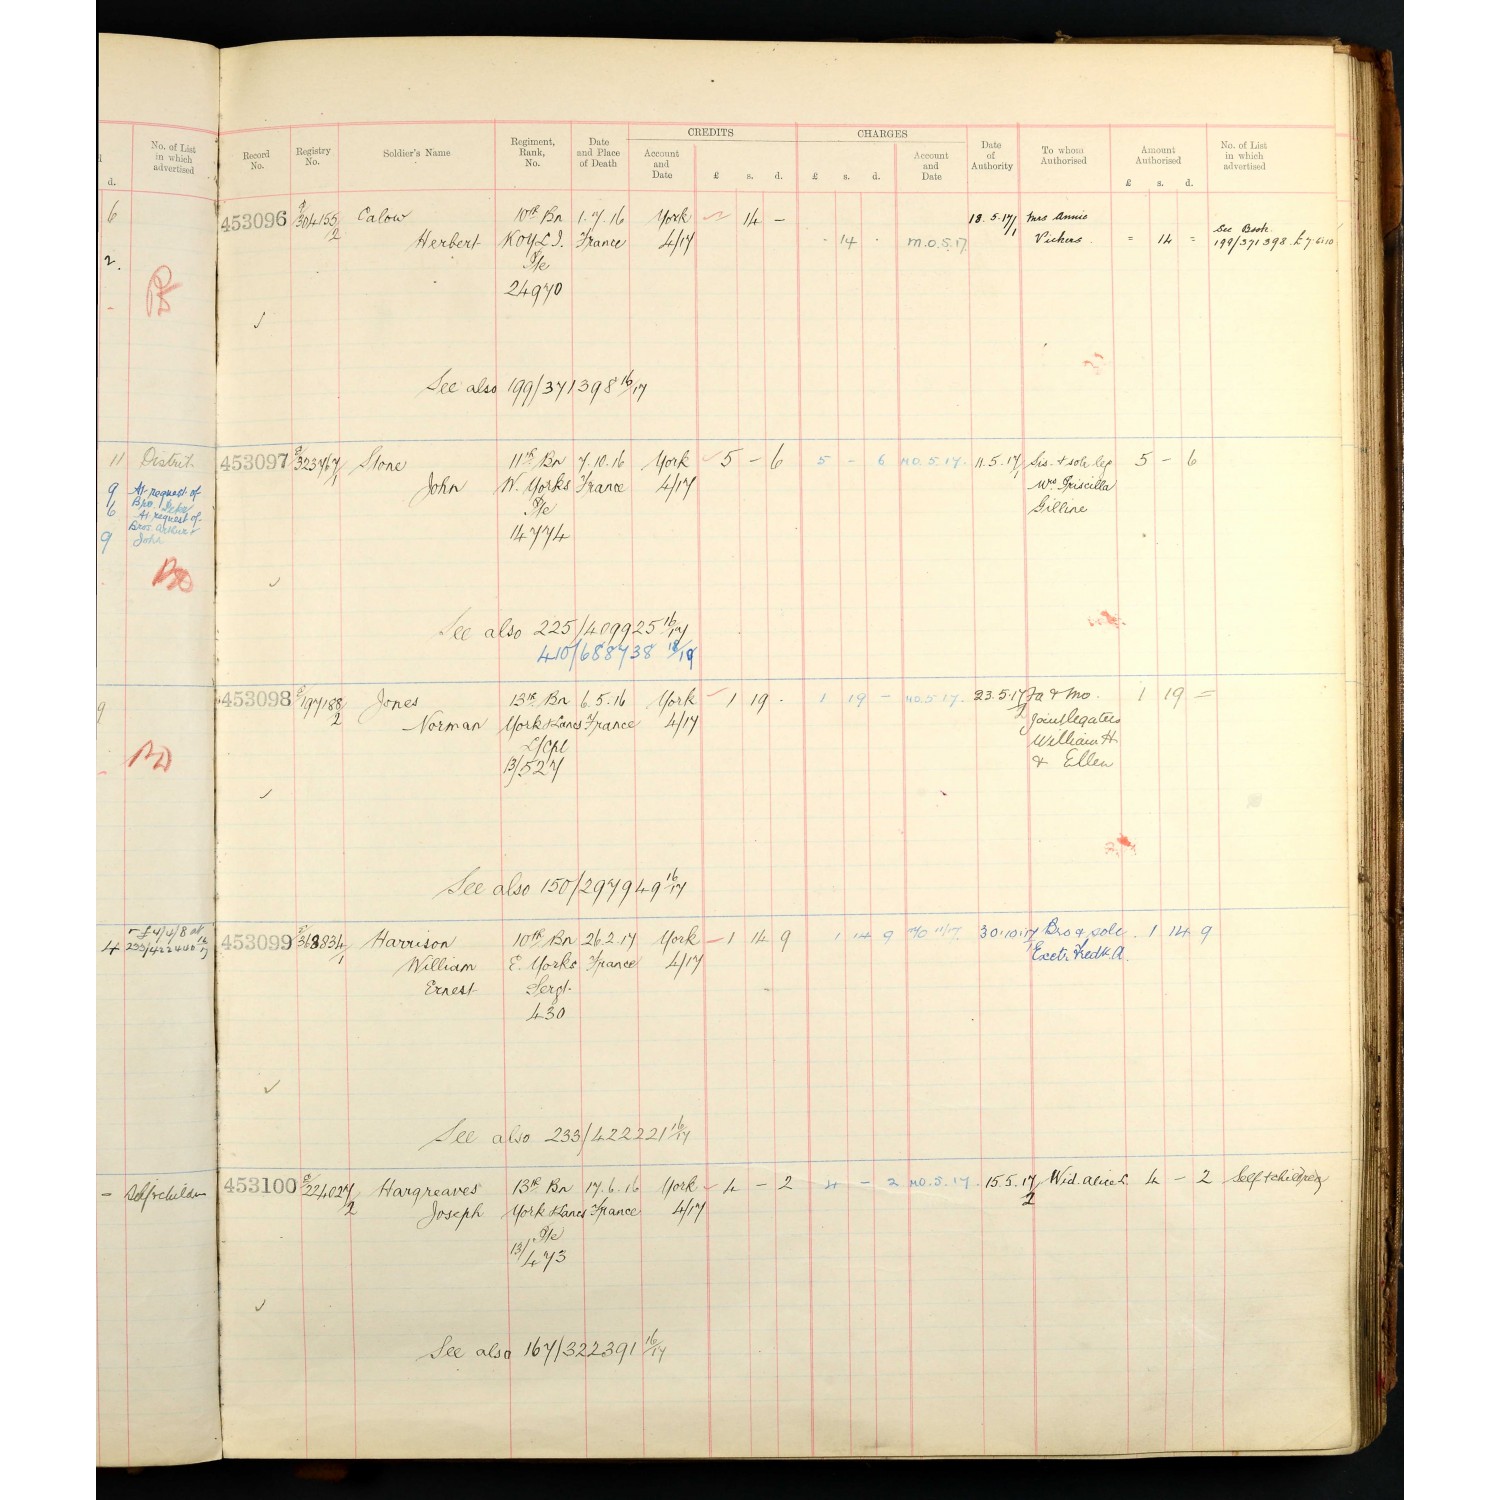 No. of List in which advertised
d.
6
2.
11 District
9 At request of
6 Bro.
At request of
Bros. Arthur &
9 John
9
- £4/4/8 at
4 233/422440 16/17
- Self & children
CREDITS CHARGES
Record No. Registry No. Soldier's Name Regiment, Rank, No. Date and Place of Death Account and Date £ s. d. £ s. d. Account and Date Date of Authority To whom Authorised Amount Authorised £ s. d. No. of List in which advertised
453096 E/304155/2 Calow 10th Bn 1.7.16 York 14 - 18.5.17/1 Mrs Annie
Herbert KOYLI. France 4/17 14 M.O.5.17 Vickers = 14 = See Book 199/371398 £7.6.10
Pte
24970
See also 199/371398 16/17
453097 E/323767/1 Stone 11th Bn 7.10.16 York 5 - 6 5 - 6 M.O.5.17. 11.5.17/1 Sis. & sole leg 5 - 6
John W. Yorks France 4/17 Mrs Priscilla
Pte Gilline
14774
See also 225/409925 16/17
410/688738 18/19
453098 E/197188/2 Jones 13th Bn 6.5.16 York 1 19 - 1 19 - M.O.5.17. 23.5.17/2 Fa & Mo. 1 19 =
Norman York & Lancs France 4/17 Joint legatees
L/Cpl William H
13/527 & Ellen
See also 150/297949 16/17
453099 E/368834/1 Harrison 10th Bn 26.2.17 York 1 14 9 1 14 9 MO 11/17. 30.10.17/1 Bro & sole 1 14 9
William E. Yorks France 4/17 Exctr Fredk. A.
Ernest Sergt.
430
See also 233/422221 16/17
453100 E/224027/2 Hargreaves 13th Bn 17.6.16 York 4 - 2 4 - 2 M.O.5.17. 15.5.17/2 Wid. Alice L 4 - 2 Self & children
Joseph York & Lancs France 4/17
Pte
13/473
See also 167/322391 16/17